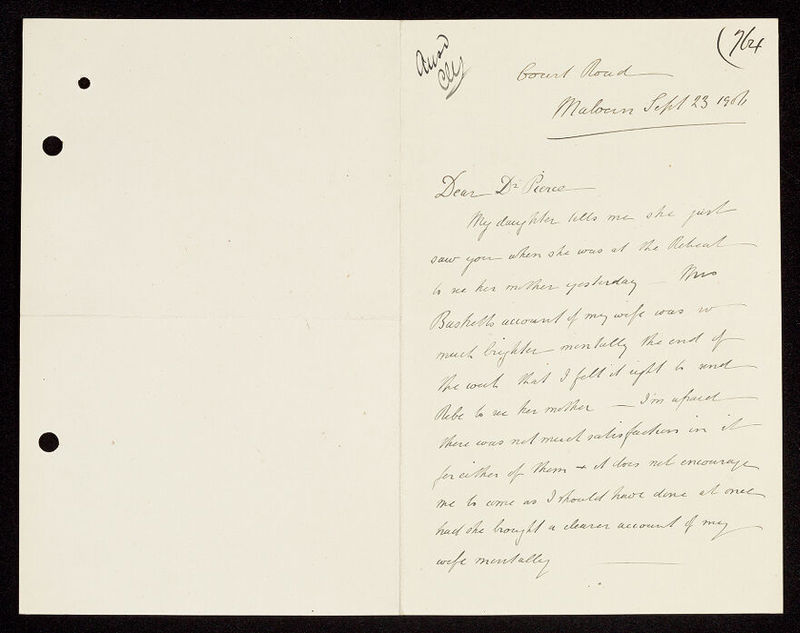 (764
Ansd
Court Road
Malvern Sept 23 1906
Dear Dr Pierce
My daughter tells me she just
saw you when she was at the Retreat
to see her mother yesterday — Mrs
Basketts account of my wife was so
much brighter mentally the end of
the week that I felt it right to send
Rebe to see her mother — I'm afraid
there was not much satisfaction in it
for either of them & it does not encourage
me to come as I should have done at once
had she brought a clearer account of my
wife mentally